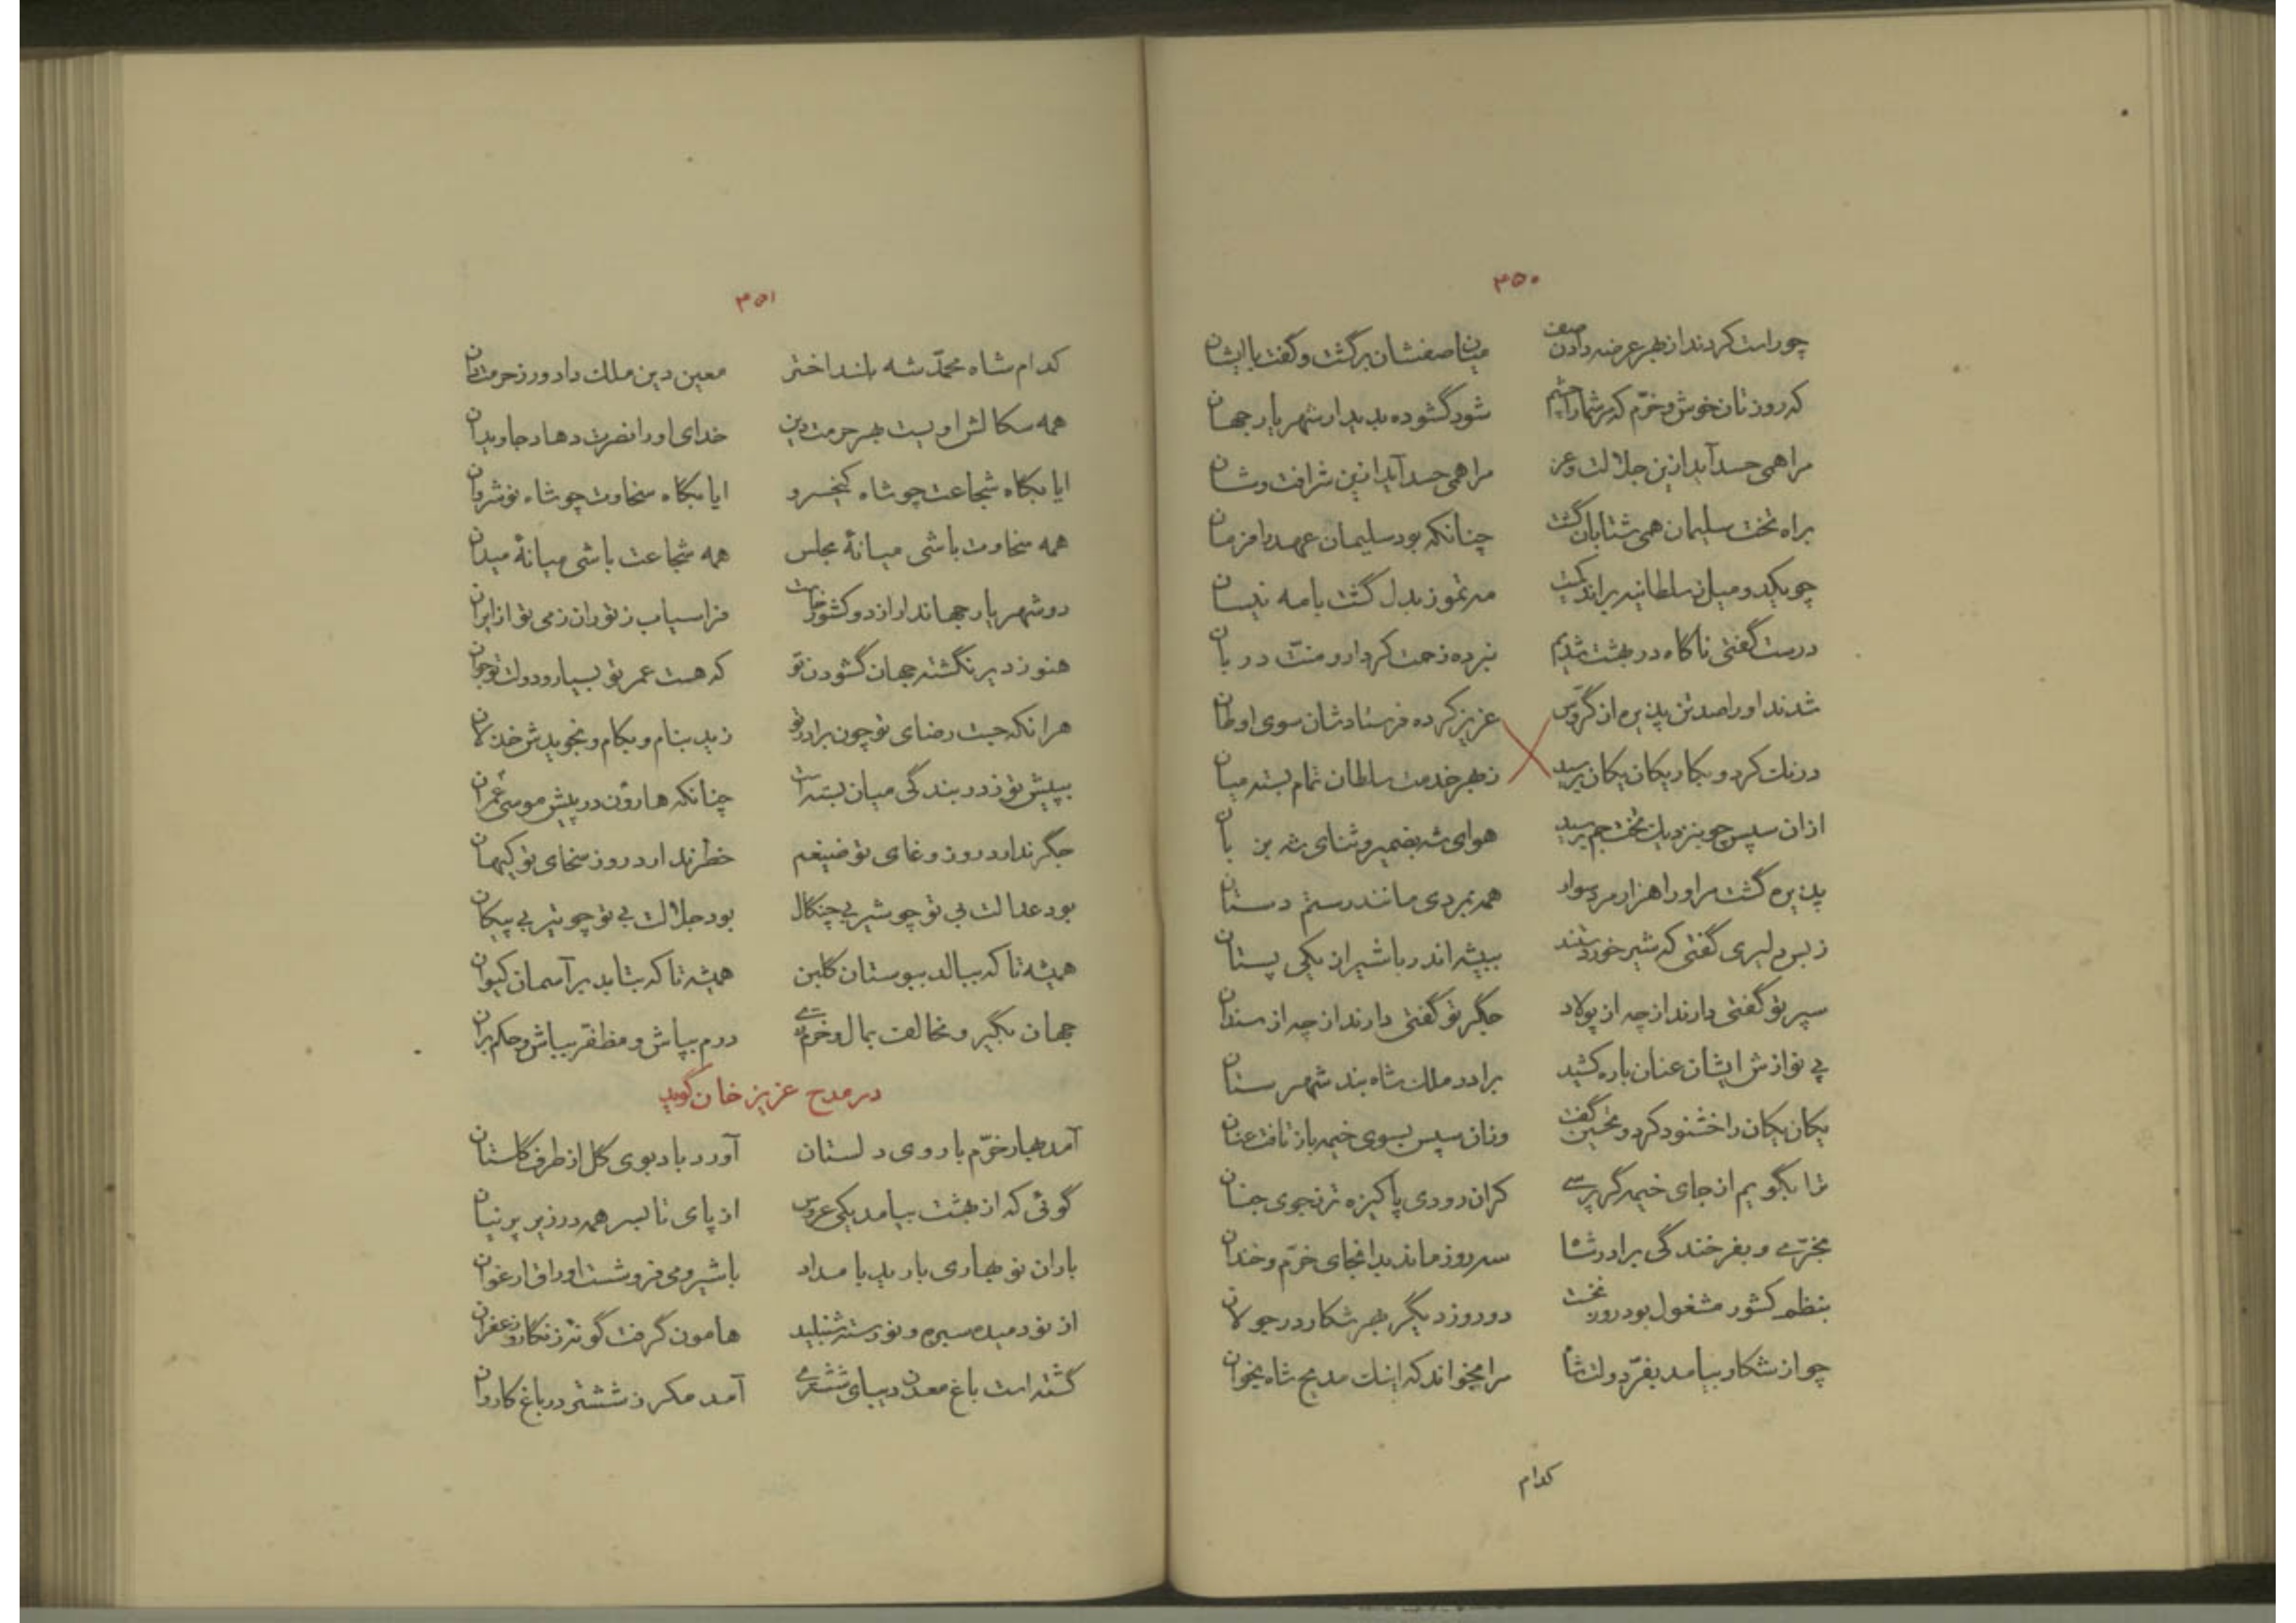 ۳۵۰
چو راست کردند از بهر عرضه دادن صف میان صفشان برگشت و گفت با ایشان
که روزتان خوش و خرّم که مر شما را چشم شود گشوده بدیدار شهریار جهان
مرا همی حسد آید ازین جلالت و عز مرا همی حسد آید ازین شرافت و شان
براه تخت سلیمان همی شتابان گشت چنانکه بود سلیمان عهد را فرمان
چو یکدو میل ز سلطانیه براند کمیت مه تموز بدل گشت با مه نیسان
درست گفتی ناگاه در بهشت شدیم نبرده زحمت کردار و منّت دربان
شدند او را صد تن پذیره از گرّوس عزیز کرده فرستادشان سوی اوطان
درنک کرد و بکار یکان یکان برسید ز بهر خدمت سلطان تمام بسته میان
ازان سپس چو بنزدیک تخت جم برسید هوای شه بضمیر و ثنای شه بزبان
پذیره گشت مر او را هزار مرد سوار همه بمردی مانند رستم دستان
ز بس دلیری گفتی که شیر خوردستند ببیشه اندر با شیر از یکی پستان
سپر تو گفتی دارند از چه از پولاد جگر تو گفتی دارند از چه از سندان
پی نوازش ایشان عنان باره کشید برادر ملک شاه بند شهرستان
یکان یکان را خشنود کرد و تحسین گفت وزان سپس بسوی خیمه باز تافت عنان
ترا بگویم از جای خیمه گر پرسی کران رودی پاکیزه تر ز جوی جنان
بخرّمی و بفرخندگی برادر شاه سه روز ماند بدانجای خرّم و خندان
بنظم کشور مشغول بود روز نخست دو روز دیگر بهر شکار در جولان
چو از شکار بیامد بفرّ دولت شاه مرا بخواند که اینک مدیح شاه بخوان
کدام
۳۵۱
کدام شاه محمّد شه بلند اختر معین دین ملک دادورز حرمت دان
همه سکالش اویست بهر حرمت دین خدای او را نصرت دهاد جاویدان
ایا بگاه شجاعت چو شاه کیخسرو ایا بگاه سخاوت چو شاه نوشروان
همه سخاوت باشی میانهٔ مجلس همه شجاعت باشی میانهٔ میدان
دو شهریار جهاندار از دو کشور خاست فراسیاب ز توران زمی تو از ایران
هنوز دیر نگشته جهان گشودن تو که هست عمر تو بسیار و دولت تو جوان
هرانکه جست رضای تو چون برادر تو زید بنام و بکام و نجویدش خذلان
بپیش تو ز در بندگی میان بسته است چنانکه هارون در پیش موسی عمران
جگر ندارد روز وغای تو ضیغم خطر ندارد روز سخای تو کیهان
بود عدالت بی تو چو شیر بی چنگال بود جلالت بی تو چو تیر بی پیکان
همیشه تا که ببالد ببوستان گلبن همیشه تا که بتابد بر آسمان کیوان
جهان بگیر و مخالف بمال و خرّم زی درم بپاش و مظفّر بباش و حکم بران
در مدح عزیز خان گوید
آمد بهار خرّم با روی دلستان آورد باد بوی گل از طرف گلستان
گوئی که از بهشت بیامد یکی عروس از پای تا بسر همه در زیر پرنیان
باران نوبهاری بارید بامداد با شیر و می فروشست اوراق ارغوان
از نو دمیده سبزه و نو رسته شنبلید هامون گرفت گونه زنکار و زعفران
گشته است باغ معدن دیبای ششتری آمد مکر ز ششتر در باغ کاروان